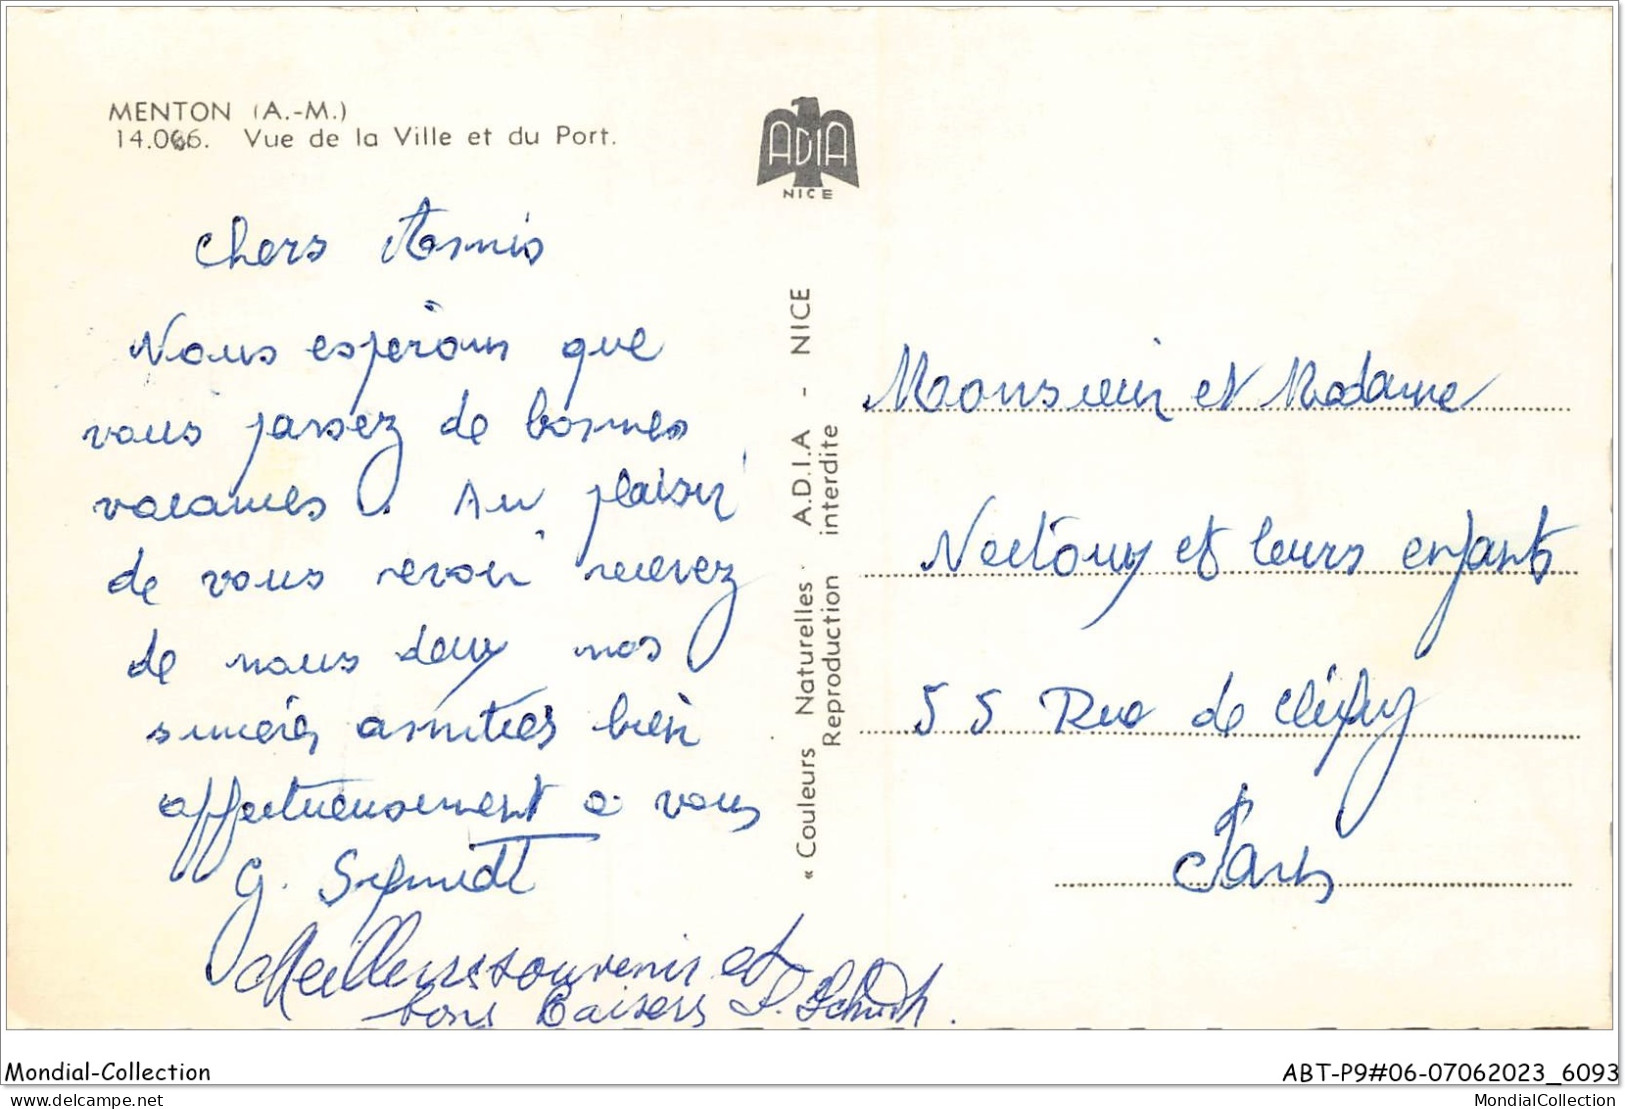 MENTON (A.-M.)
14.066. Vue de la Ville et du Port.
ADIA
NICE
Chers Amis
Nous esperons que
vous passez de bonnes
vacances. Au plaisir
de vous revoir recevez
de nous deux nos
sincères amitiés bien
affectueusement a vous
G. Schmidt
Meilleurs souvenir et
bons Baisers
« Couleurs Naturelles A.D.I.A - NICE
Reproduction interdite
Monsieur et Madame
et leurs enfants
55 Rue de Clichy
Paris
Mondial-Collection
ABT-P9#06-07062023_6093
delcampe.net
MondialCollection